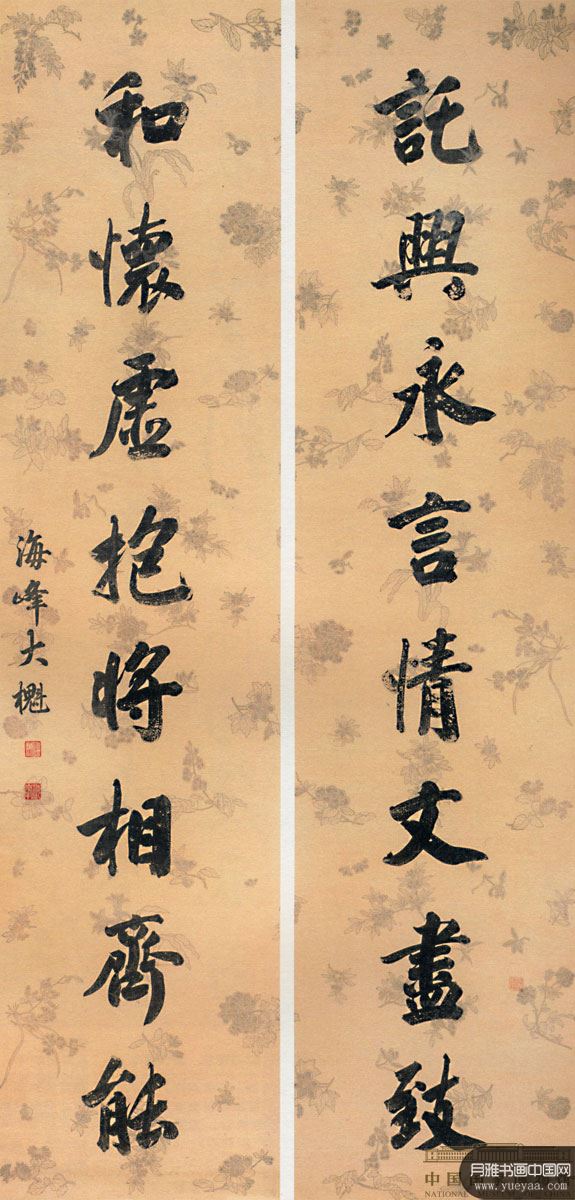 託興永言情文盡致
和懷虛抱將相齊能
海峰大櫆
中國
NATIONAL
月雅书画中国网
www.yueyaa.com